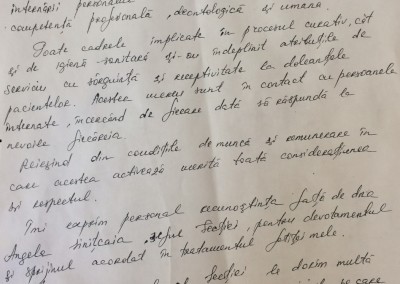 internării personalul
competență profesională, deontologică și umană.
Toate cadrele implicate în procesul curativ, cît
și de igienă-sanitară și-au îndeplinit atribuțiile de
serviciu cu sîrguință și receptivitate la doleanțele
pacientelor. Acestea mereu sunt în contact cu persoanele
internate, încercînd de fiecare dată să răspundă la
nevoile fiecăreia.
Reieșind din condițiile de muncă și remunerare în
care acestea activează merită toată considerațiunea
și respectul.
Îmi exprim personal recunoștința față de dna
Angela Sinițcaia, șeful Secției, pentru devotamentul
și sprijinul acordat în tratamentul fetiței mele.
Secției le dorim multă
care